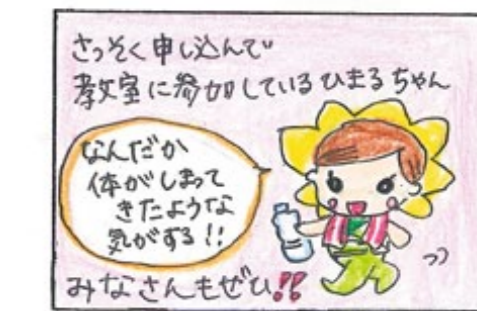 さっそく申し込んで
教室に参加しているひまるちゃん
なんだか
体がしまって
きたような
気がする!!
みなさんもぜひ!!